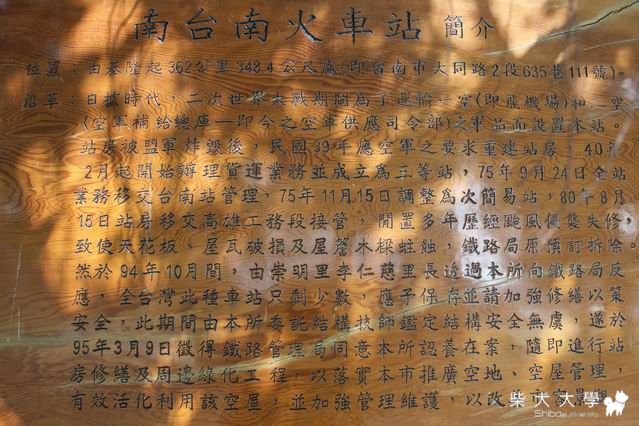 南台南火車站 簡介
位置：由基隆起362公里348.4公尺處(即台南市大同路2段635巷111號)。
沿革：日據時代，二次世界大戰期間為了運輸一空(即飛機場)和二空
(空軍補給總庫—即今之空軍供應司令部)之軍品而設置本站。
站房被盟軍炸毀後，民國39年應空軍之要求重建站房，40年
2月起開始辦理貨運業務並成立為三等站，75年9月24日全站
業務移交台南站管理，75年11月15日調整為次簡易站，80年8月
15日站房移交高雄工務段接管，閒置多年歷經颱風侵襲失修，
致使天花板、屋瓦破損及屋簷木樑蛀蝕，鐵路局原預訂拆除。
然於94年10月間，由崇明里李仁慈里長透過本所向鐵路局反
應，全台灣此種車站只剩少數，應予保存並請加強修繕以策
安全，此期間由本所委託結構技師鑑定結構安全無虞，遂於
95年3月9日徵得鐵路管理局同意本所認養在案，隨即進行站
房修繕及周邊綠化工程，以落實本市推廣空地、空屋管理，
有效活化利用該空屋，並加強管理維護，以改
柴犬大學
Shiba University